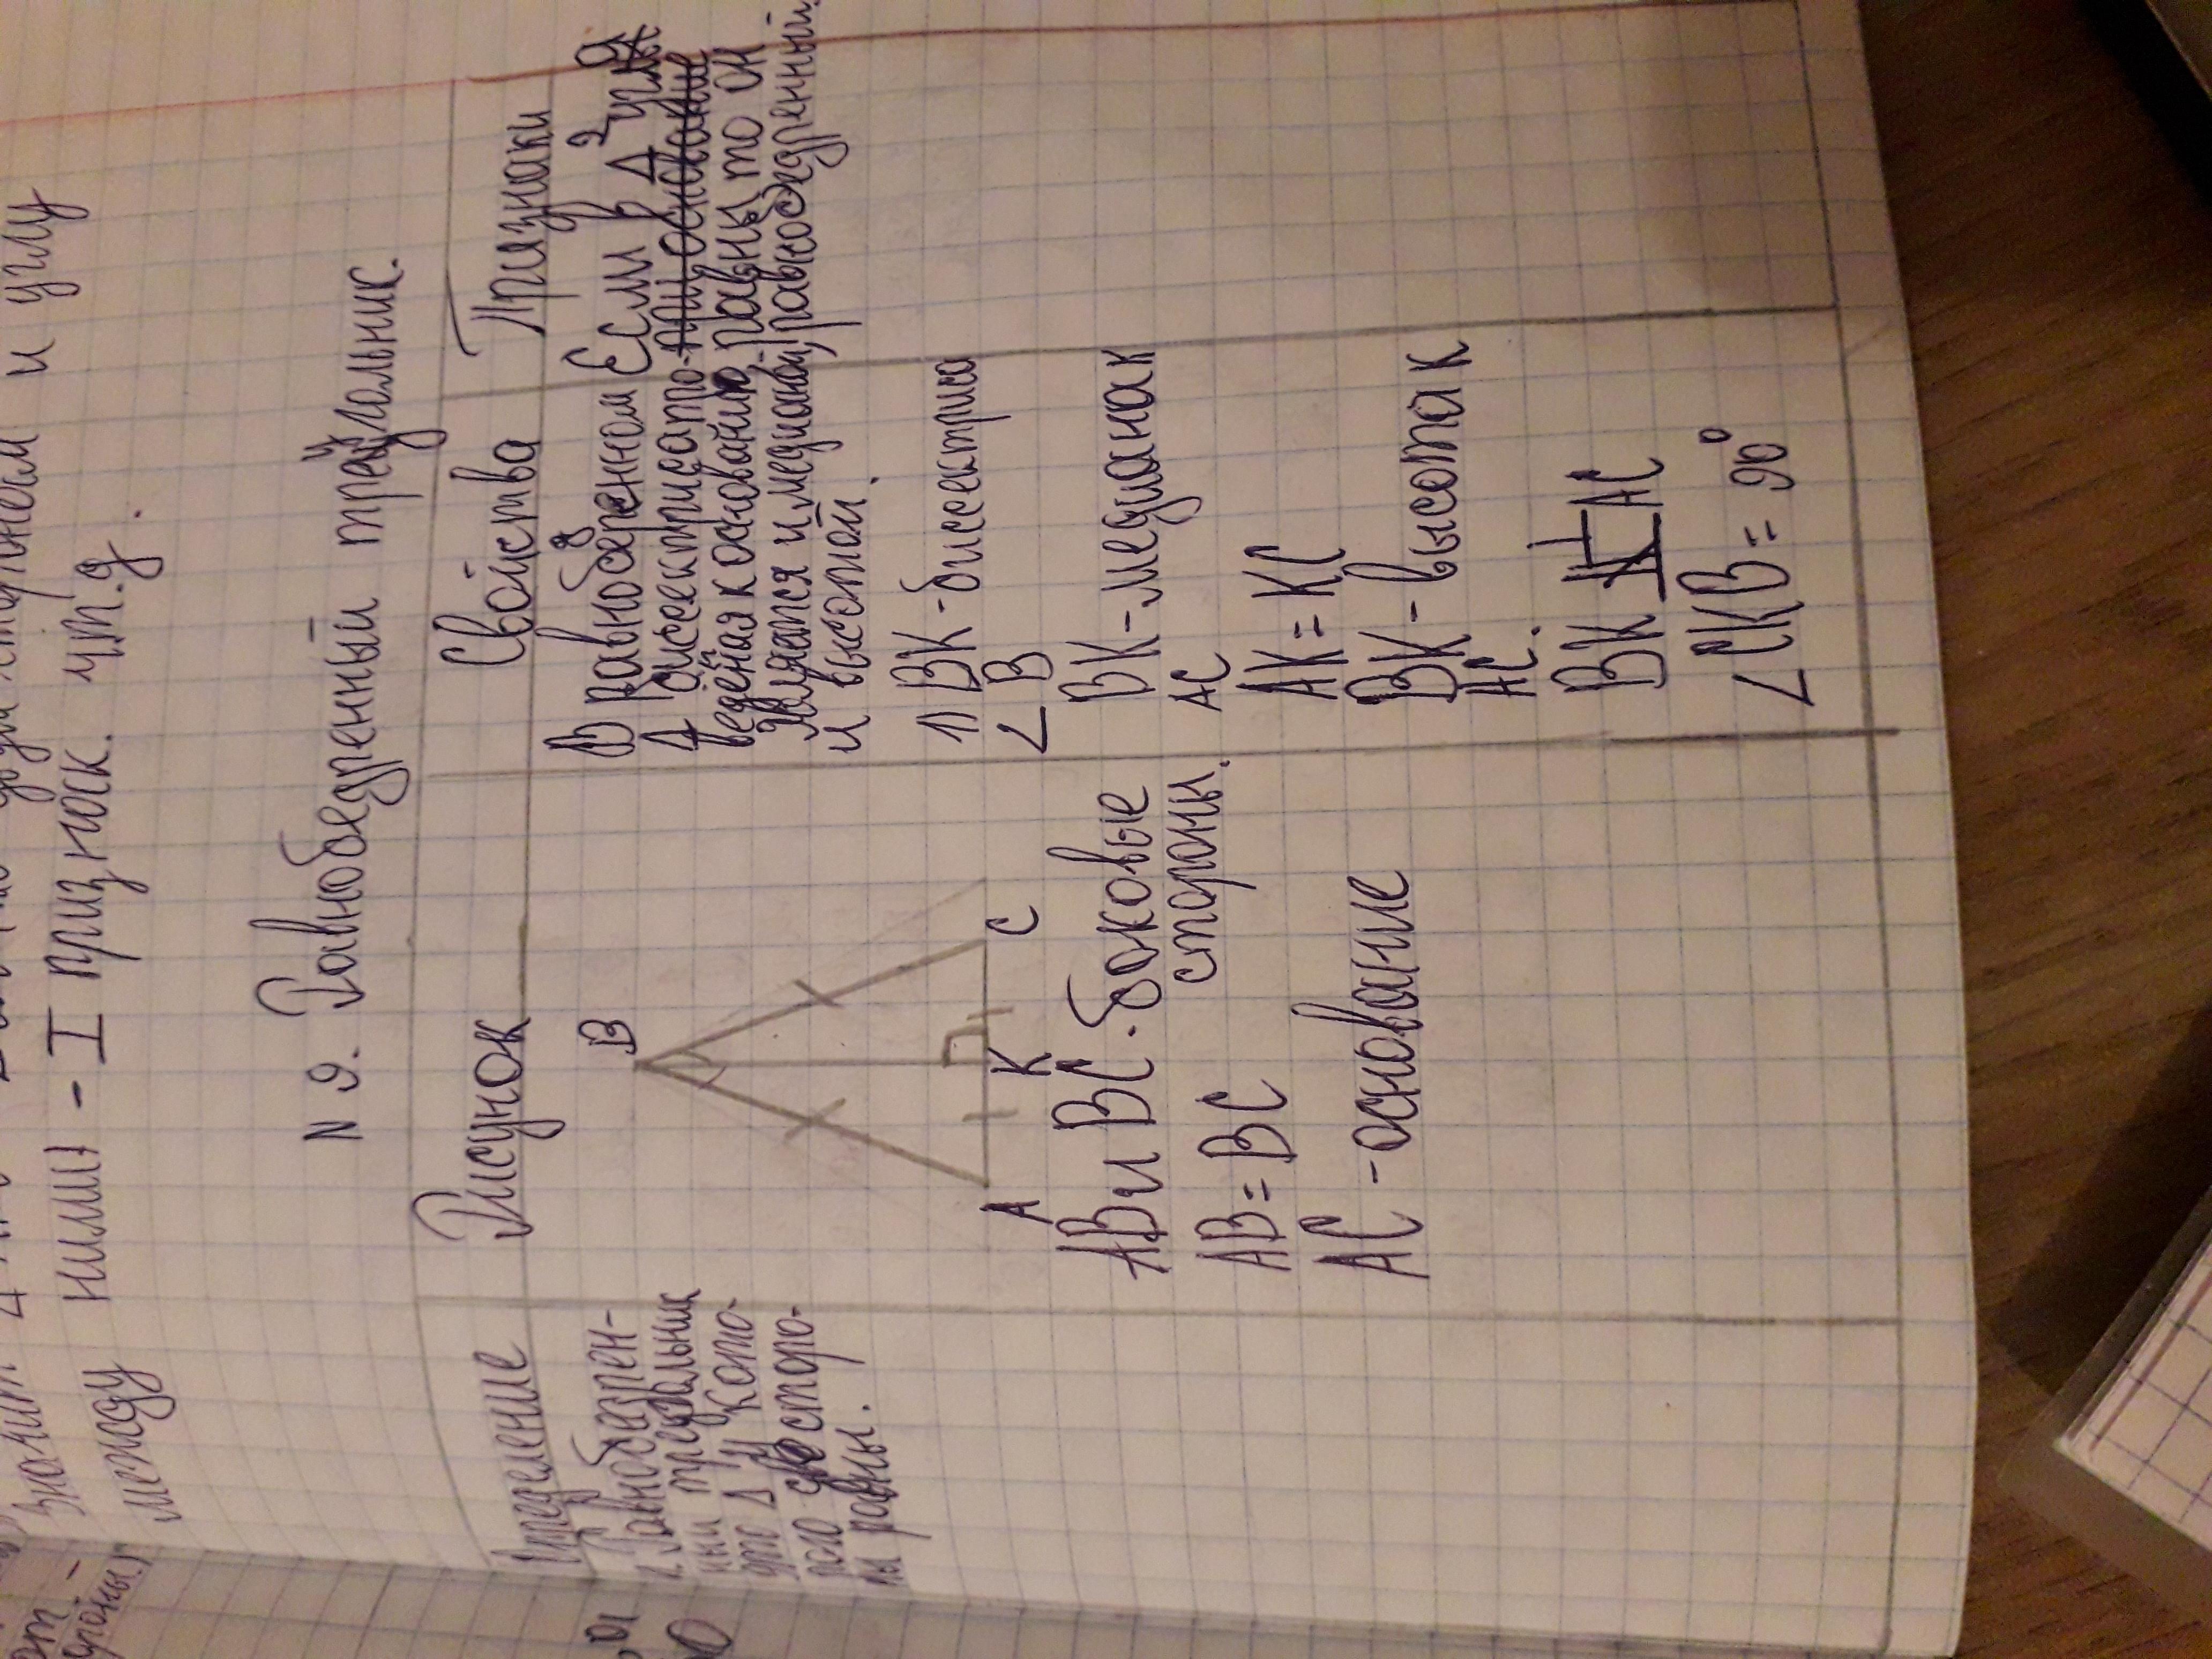 и углу
между ними) - I признак. ч.т.д.
N 9. Равнобедренный треугольник.
Рисунок
Свойства
Признаки
Равнобедрен-
ный треугольник
это Δ у кото-
рого две сторо-
ны равны.
B
A K C
AB и BC - боковые
стороны.
AB = BC
AC - основание
1) В равнобедренном
Δ биссектриса про-
ведёная к основанию,
является и медианой,
и высотой.
1) BK - биссектриса
∠B
BK - медиана к
AC
AK = KC
BK - высота к
AC.
BK ⊥ AC
∠CKB = 90°
Если в Δ 2 угла
при основание
равны, то он
равнобедренный.